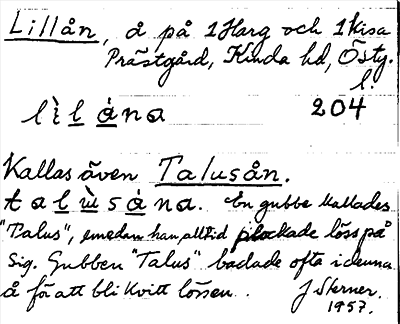 Lillån, å på 1 Harg och 1 Kisa
Prästgård, Kinda hd, Östg.
l.
lìlána 204
Kallas även Talusån.
talu̇̀sȧna. En gubbe kallades
"Talus", emedan han alltid plockade löss på
sig. Gubben "Talus" badade ofta i denna
å för att bli kvitt lössen.
J Sterner.
1957.